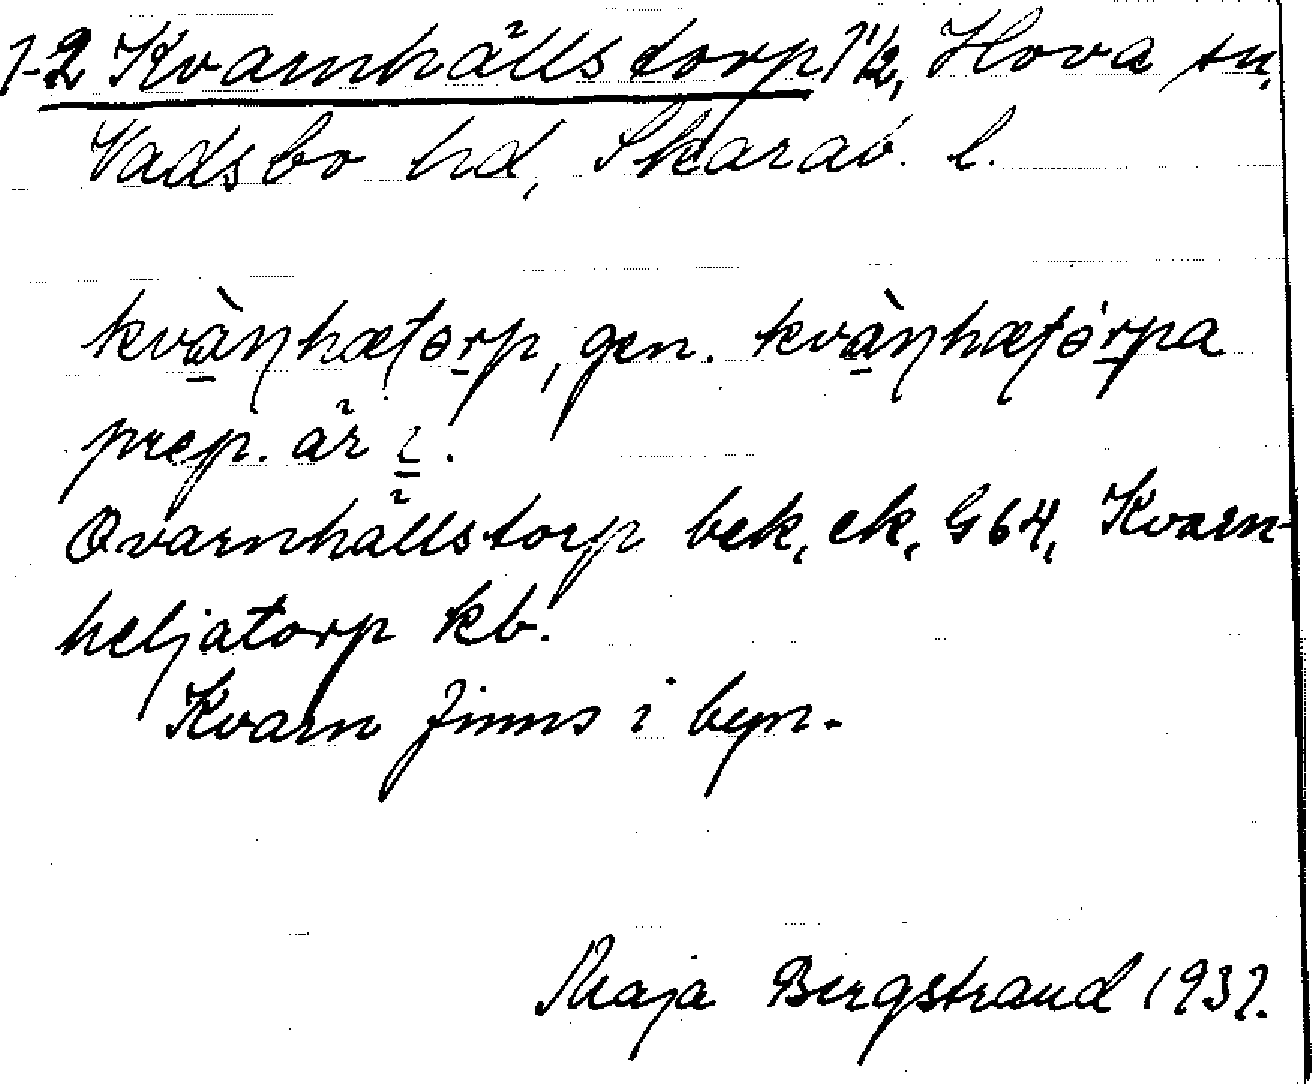 1-2 Kvarnhällstorp 1 1/2, Hova sn,
Vadsbo hd, Skarab. l.
kvànhætɵrp, gen. kvànhætɵ́rpa
prep. är i.
Qvarnhällstorp bek, ek, G64, Kvarn-
heljatorp kb.
Kvarn finns i byn.
Maja Bergstrand 1937.